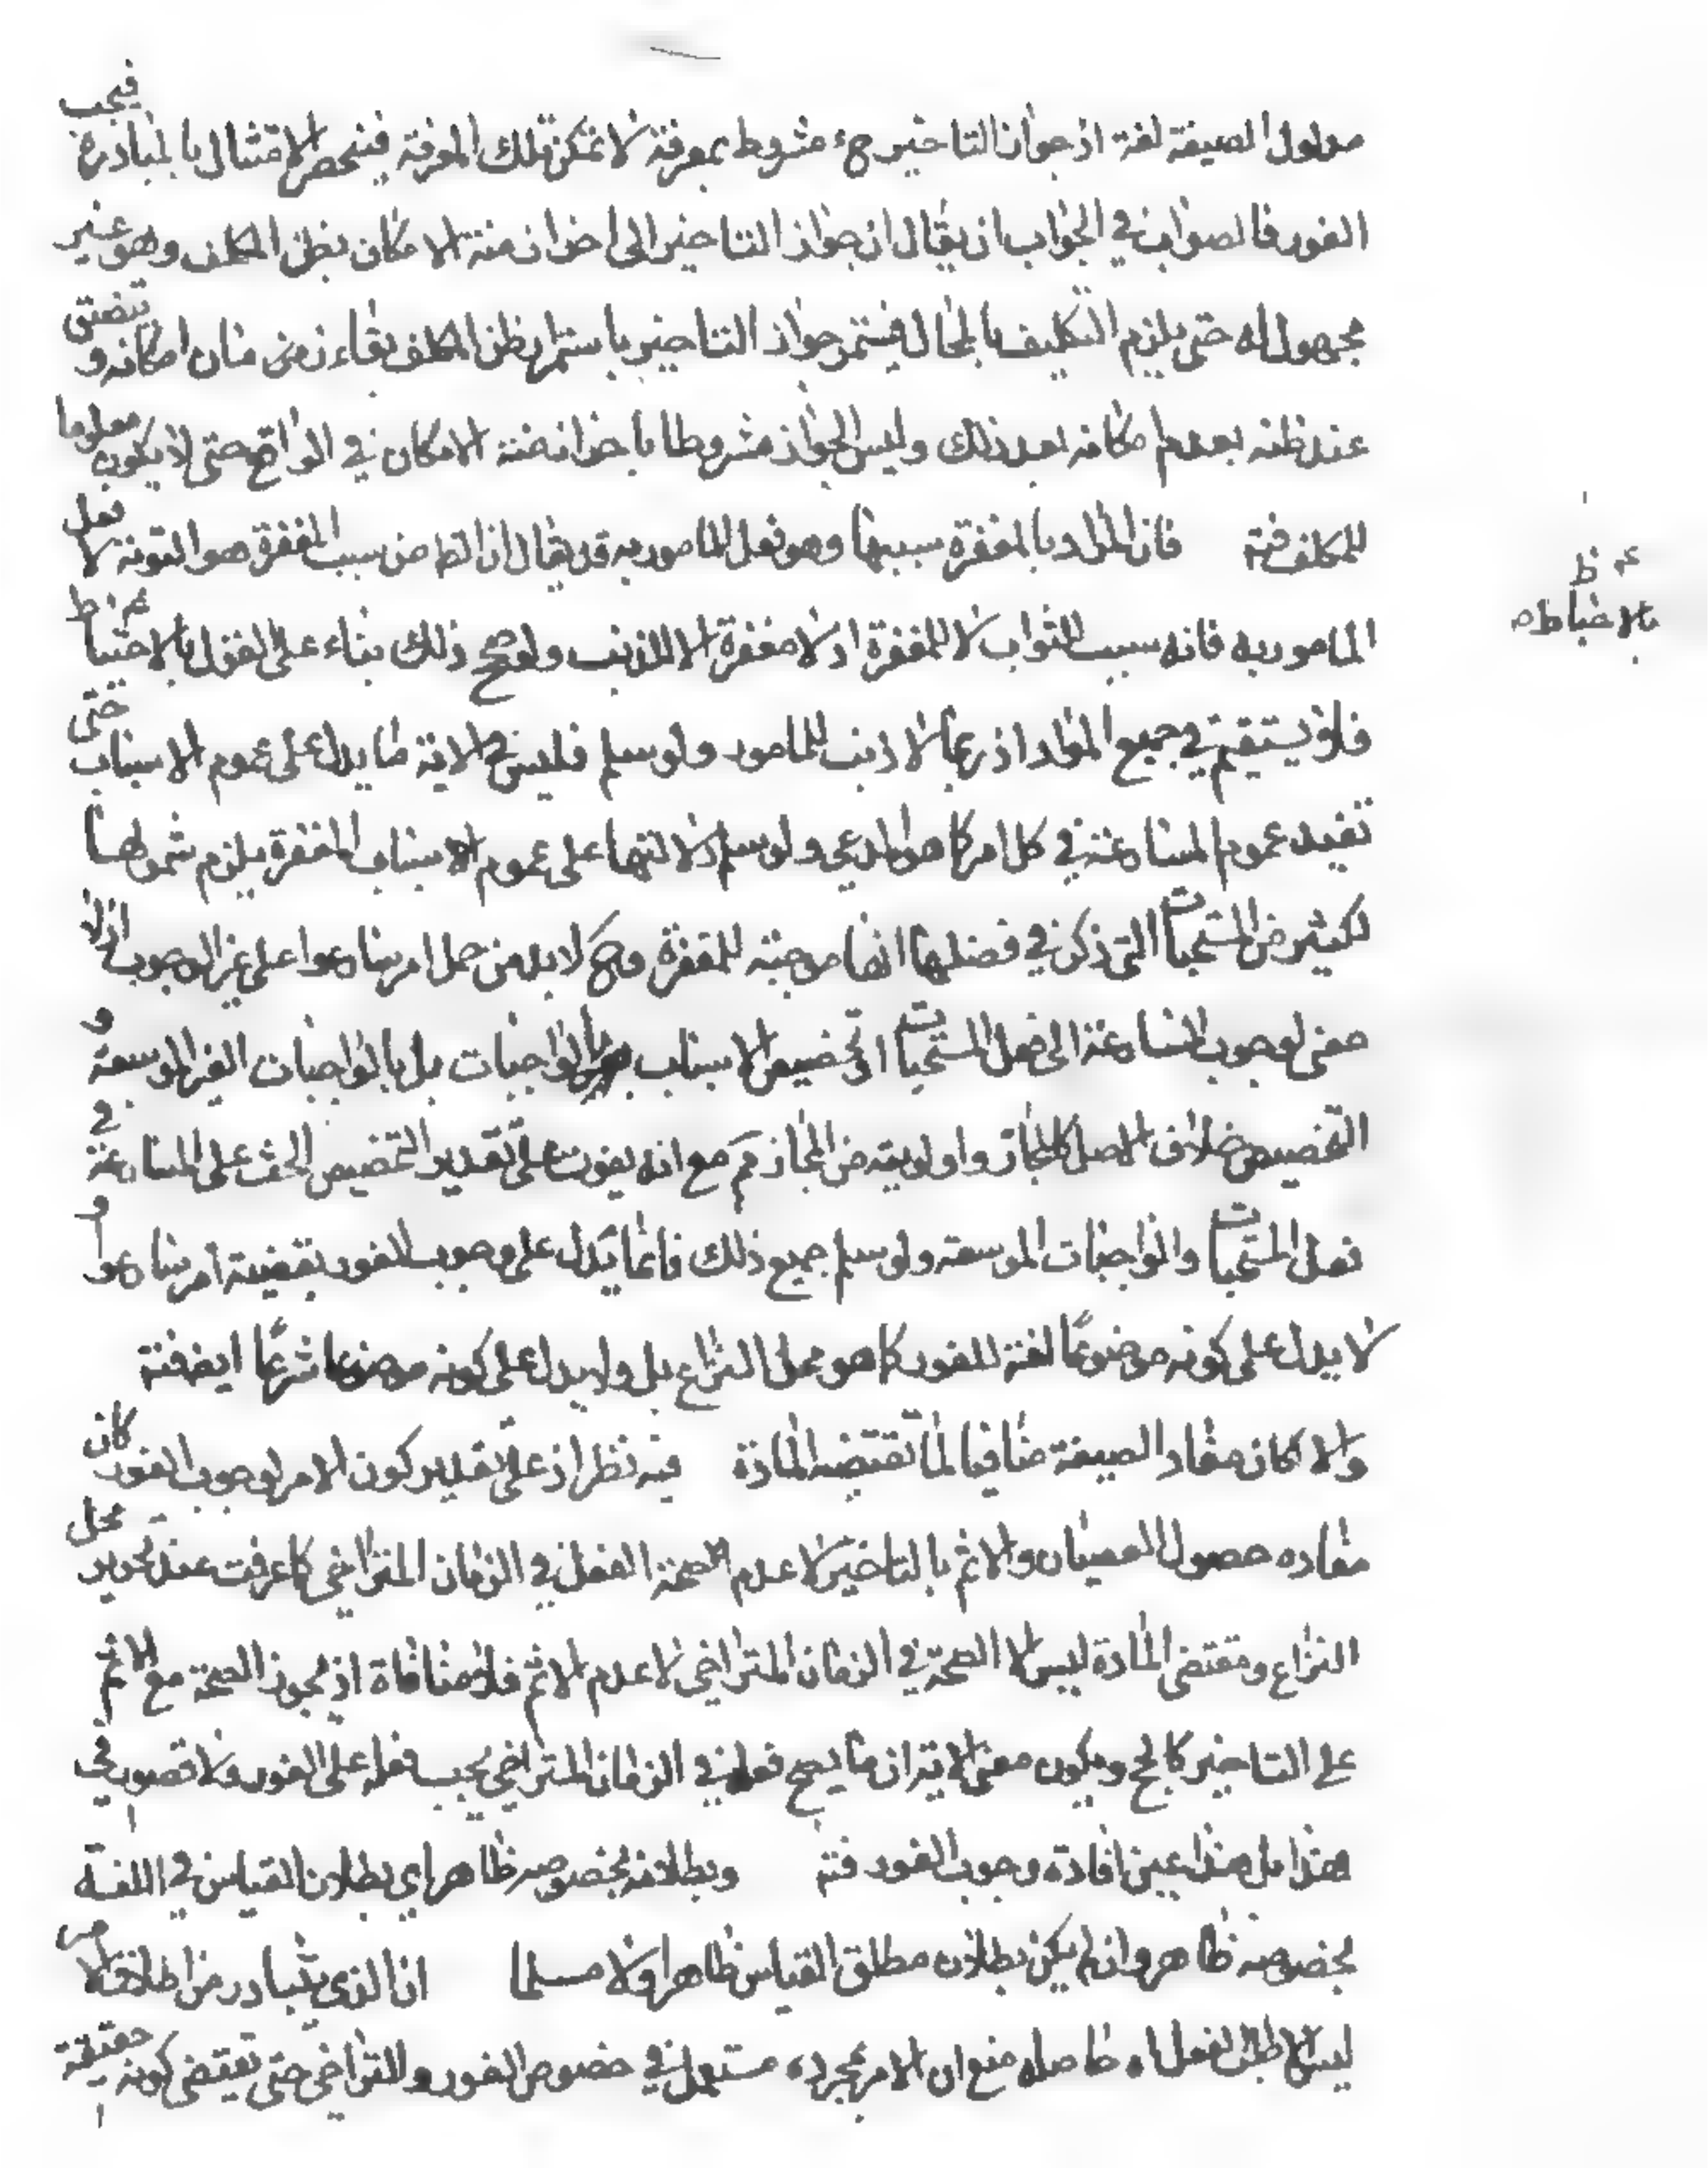 مدلول الصيغة لغة اذ جواز التاخير ح مشروط بمعرفة لا تمكن تلك المعرفة فينحصر الامتثال بالمبادرة فيجب
الفور فالصواب في الجواب ان يقال ان جواز التاخير الى اخر ازمنة الامكان بظن المكلف وهو غير
مجهول له حتى يلزم التكليف بالمحال فيستمر جواز التاخير باستمرار ظن المكلف بقاء زمن مان امكانه و تضيق
عند ظنه بعدم امكانه بعد ذلك وليس الجواز مشروطا باخر ازمنة الامكان في الواقع حتى لا يكون معلوما
للمكلف فتم فان المراد بالمغفرة سببها وهو فعل المامور به قد يقال ان الظ من سبب المغفرة هو التوبة لا فعل
المامور به فانه سبب الثواب لا للمغفرة اذ لا مغفرة الا للذنب ولو صح ذلك بناء على القول بالاحتباط
فلا يستقيم في جميع المواد اذ ربما لا ذنب للمامور ولو سلم فليس في الاية ما يدل على عموم الاسباب حتى
تفيد عموم المسارعة في كل امر كما هو المدعي ولو سلم دلالتها على عموم الاسباب المغفرة يلزم شمولها
لكثير من المستحبات التي ذكر في فضلها انها موجبة للمغفرة وح لا بد من حمل امر سارعوا على غير الوجوب اذ لا
معنى لوجوب المسارعة الى فعل المستحبات او تخصيص الاسباب بالواجبات بل بالواجبات الغير الموسعة و
التخصيص خلاف الاصل كالمجاز واولويته من المجاز مم مع انه يفوت على تقدير التخصيص الحث على المسارعة في
فعل المستحبات والواجبات الموسعة ولو سلم جميع ذلك فانما يدل على وجوب الفور بقضية امر سارعوا و
لا يدل على كونه موضوعا لغة للفور كما هو محل النزاع بل ولا يدل على كونه موضوعا شرعا ايض فتم
والا كان مفاد الصيغة منافيا لما تقتضيه المادة فيه نظر اذ على تقدير كون الامر لوجوب الفور كان
مفاده حصول العصيان والاثم بالتاخير لا عدم الصحة الفعل في الزمان المتراخي كما عرفت عند تحرير محل
النزاع ومقتضى المادة ليس الا الصحة في الزمان المتراخي لا عدم الاثم فلا منافاة اذ يجوز الصحة مع الاثم
على التاخير كالحج ويكون معنى الاية ان ما يصح فعله في الزمان المتراخي يجب فعله على الفور ولا قصور في
هذا بل هذا عين افادة وجوب الفور فتم وبطلانه بخصوصه ظاهر اي بطلان القياس في اللغة
بخصوصه ظاهر وان لم يكن بطلان مطلق القياس ظاهرا ولا مسلما ان الذي يتبادر من اطلاق الامر
ليس الا طلب الفعل اه حاصله منع ان الامر بمجرده مستعمل في خصوص الفور والتراخي حتى يقتضى كونه حقيقة
ظ
بالاحباط